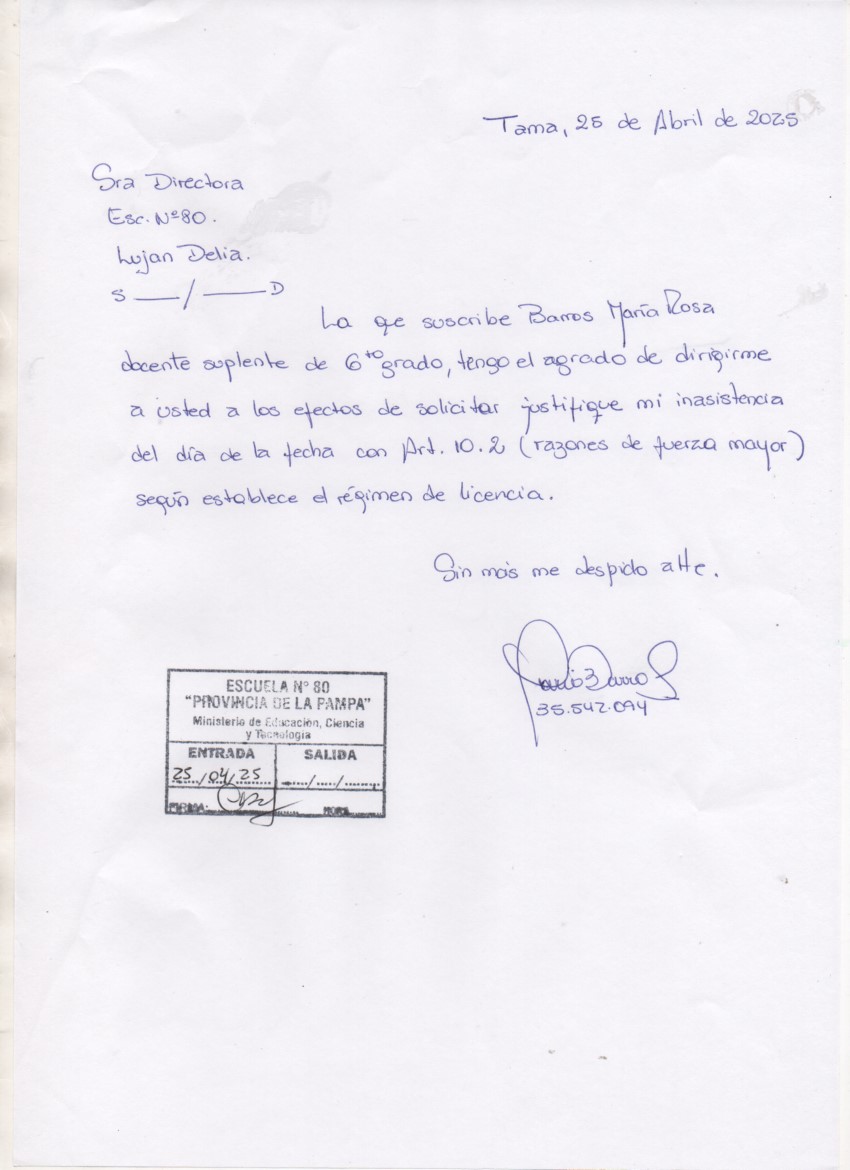 Tama, 25 de Abril de 2025
Sra Directora
Esc. Nº80.
Lujan Delia.
S ___/___ D
La qe suscribe Barros María Rosa
docente suplente de 6to grado, tengo el agrado de dirigirme
a usted a los efectos de solicitar justifique mi inasistencia
del día de la fecha con Art. 10.2 (razones de fuerza mayor)
según establece el régimen de licencia.
Sin más me despido atte.
35.542.094
ESCUELA Nº 80
"PROVINCIA DE LA PAMPA"
Ministerio de Educación, Ciencia
y Tecnología
ENTRADA SALIDA
25/04/25 ..../..../....
FIRMA: HORA